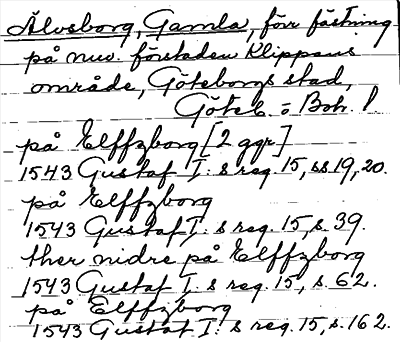 Älvsborg, Gamla, förr fästning
på nuv. förstaden Klippans
område, Göteborgs stad,
Göteb. o. Boh. l.
på Elffzborg [2 ggr]
1543 Gustaf I:s reg. 15, ss 19, 20.
på Elffzborg
1543 Gustaf I:s reg. 15, s. 39.
ther nidre på Elffzborg
1543 Gustaf I:s reg. 15, s. 62.
på Elffzborg
1543 Gustaf I:s reg. 15, s. 162.